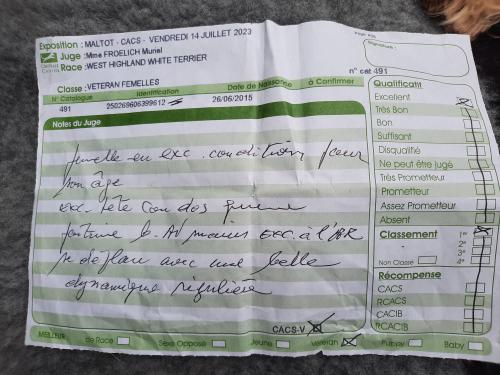 Exposition : MALTOT - CACS - VENDREDI 14 JUILLET 2023
Juge : Mme FROELICH Muriel
Race : WEST HIGHLAND WHITE TERRIER
Signature :
n° cat 491
Classe : VETERAN FEMELLES
N° Catalogue Identification Date de Naissance à Confirmer
491 250269606399612 26/06/2015
Notes du Juge
femelle en exc. condition pour
son âge
exc. tête cou dos
poitrine b. AV mais exc. à l'AR
se déplace avec une belle
dynamique régulière
CACS-V
Qualificatif
Excellent
Très Bon
Bon
Suffisant
Disqualifié
Ne peut être jugé
Très Prometteur
Prometteur
Assez Prometteur
Absent
Classement 1er
2e
3e
Non Classé 4e
Récompense
CACS
RCACS
CACIB
RCACIB
MEILLEUR de Race Sexe Opposé Jeune Vétéran Puppy Baby